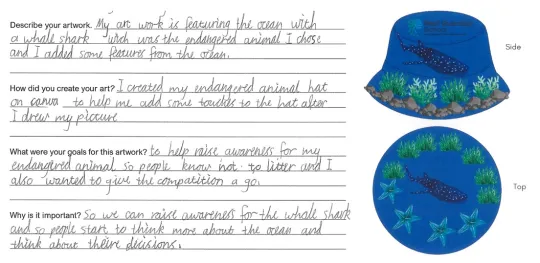 Describe your artwork. My art work is featuring the ocean with
a whale shark wich was the endangered animal I chose
and I added some features from the ocean.
How did you create your art? I created my endangered animal hat
on canva to help me add some touches to the hat after
I drew my picture
What were your goals for this artwork? to help raise awareness for my
endangered animal so people know not to litter and I
also wanted to give the compatition a go.
Why is it important? So we can raise awareness for the whale shark
and so people start to think more about the ocean and
think about theire decisions.
Side
Top